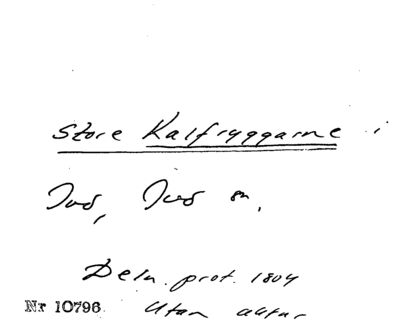 Store Kalfryggarne i
Jus, Jus sn.
Deln. prot. 1804
Nr 10796. Utan aktnr